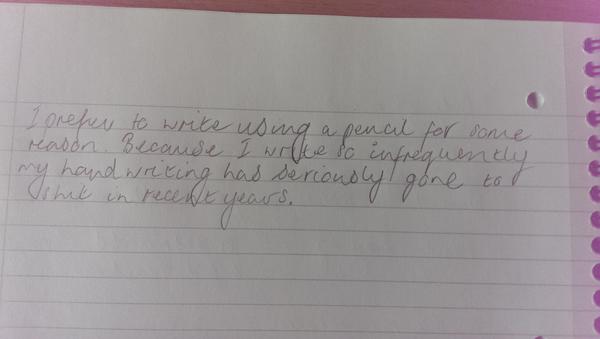 I prefer to write using a pencil for some
reason. Because I write so infrequently
my handwriting has seriously gone to
shit in recent years.